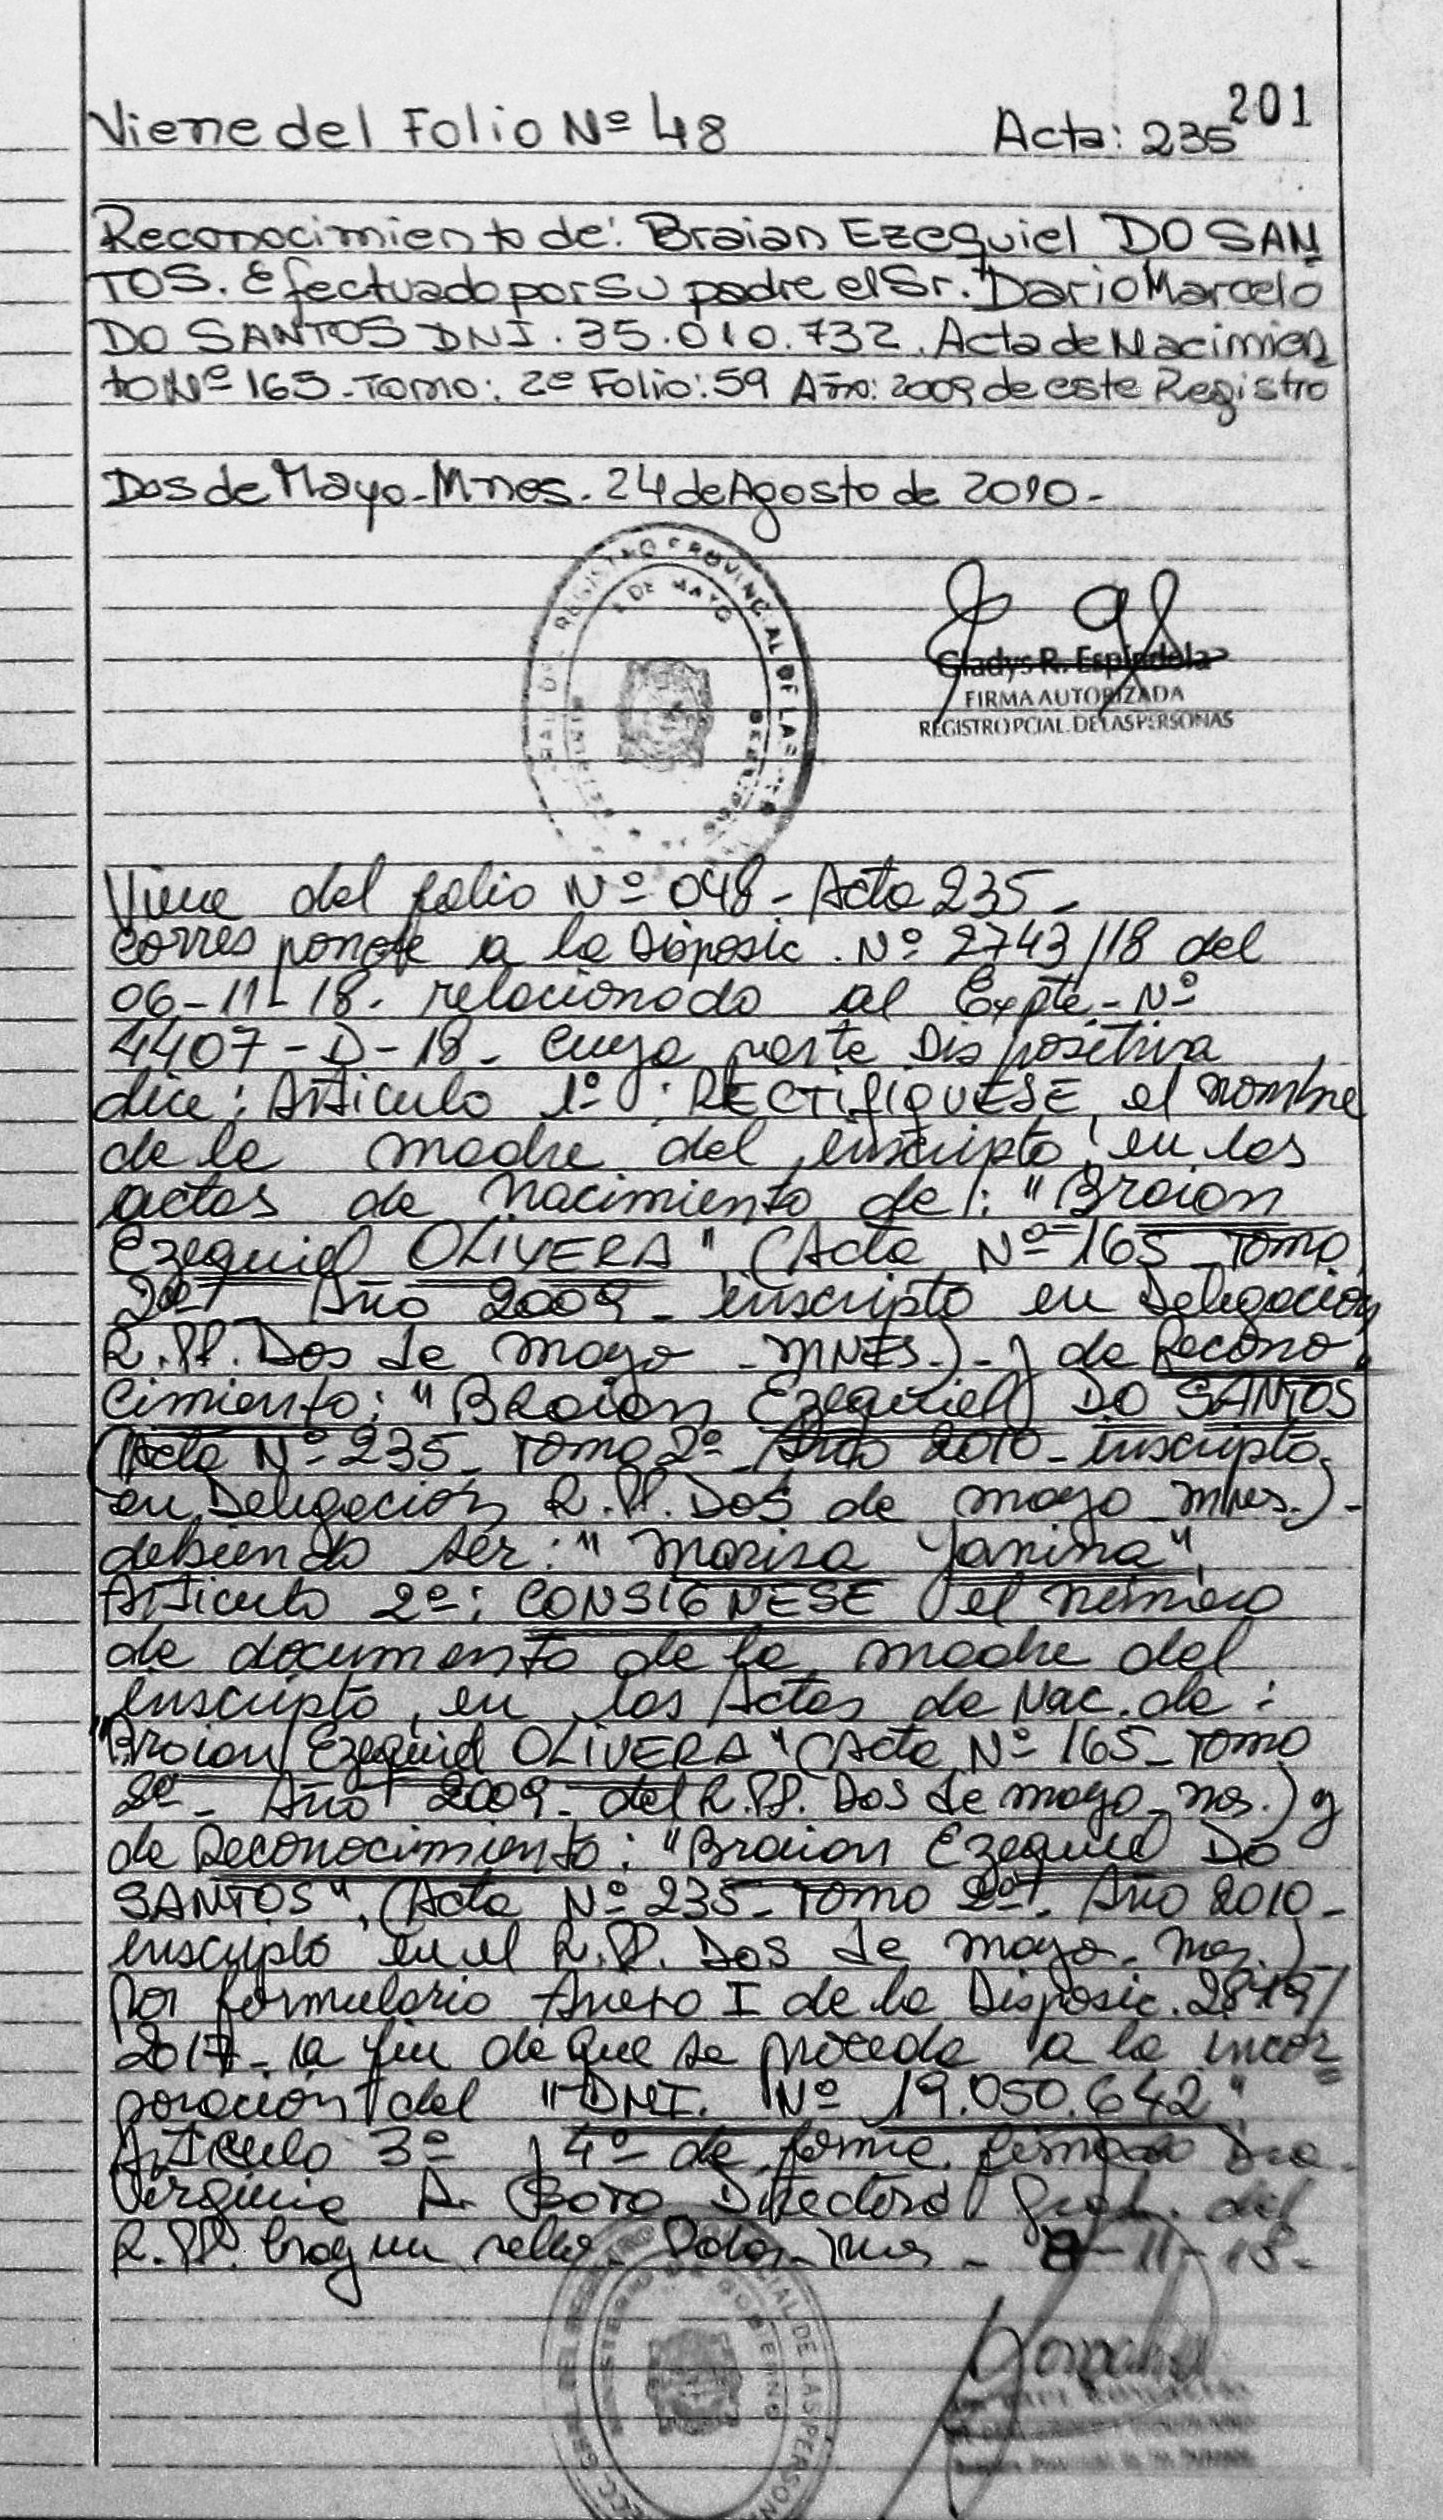 201
Viene del Folio Nº 48 Acta: 235
Reconocimiento de: Braian Ezequiel DO SAN
TOS. Efectuado por su padre el Sr. Dario Marcelo
DO SANTOS DNI. 35.010.732. Acta de Nacimien
to Nº 165 - Tomo: 2º Folio: 59 Año: 2009 de este Registro
Dos de Mayo - Mnes. 24 de Agosto de 2010 -
REGISTRO PROVINCIAL DE LAS
2 DE MAYO
Gladys R. Espíndola
FIRMA AUTORIZADA
REGISTRO PCIAL. DE LAS PERSONAS
Viene del folio Nº 048 - Acta 235 -
Corresponde a la Disposic. Nº 2743/18 del
06-11-18. relacionado al Expte. Nº
4407-D-18 - cuya parte Dispositiva
dice: Articulo 1º: RECTIFIQUESE, el nombre
de la madre del inscripto, en las
actas de Nacimiento de: "Braian
Ezequiel OLIVERA" (Acta Nº 165 - Tomo
2º - Año 2009 - inscripto en Delegación
R.PP. Dos de mayo - MNES.) - y de Recono
cimiento: "Braian Ezequiel DO SANTOS
(Acta Nº 235 - Tomo 2º - Año 2010 - inscripto
en Delegación R.PP. Dos de mayo mnes.) -
debiendo ser: "Marisa Yanina".
Articulo 2º: CONSIGNESE el número
de documento de la madre del
inscripto, en las Actas de Nac. de:
"Braian Ezequiel OLIVERA" (Acta Nº 165 - Tomo
2º - Año 2009 - del R.PP. Dos de mayo mns.) y
de Reconocimiento: "Braian Ezequiel DO
SANTOS", (Acta Nº 235 - Tomo 2º - Año 2010 -
inscripto en el R.PP. Dos de mayo - mns.)
Por formulario Anexo I de la Disposic. 2849/
2017 - a fin de que se proceda a la incor
poración del "DNI. Nº 19.050.642"
Articulo 3º y 4º de forma. firmado Dra.
Virginia A. Directora Gral. del
R.PP. Hay un sello. - 11-18 -
DEL REGISTRO DE LAS PERSONAS
MINISTERIO DE GOBIERNO